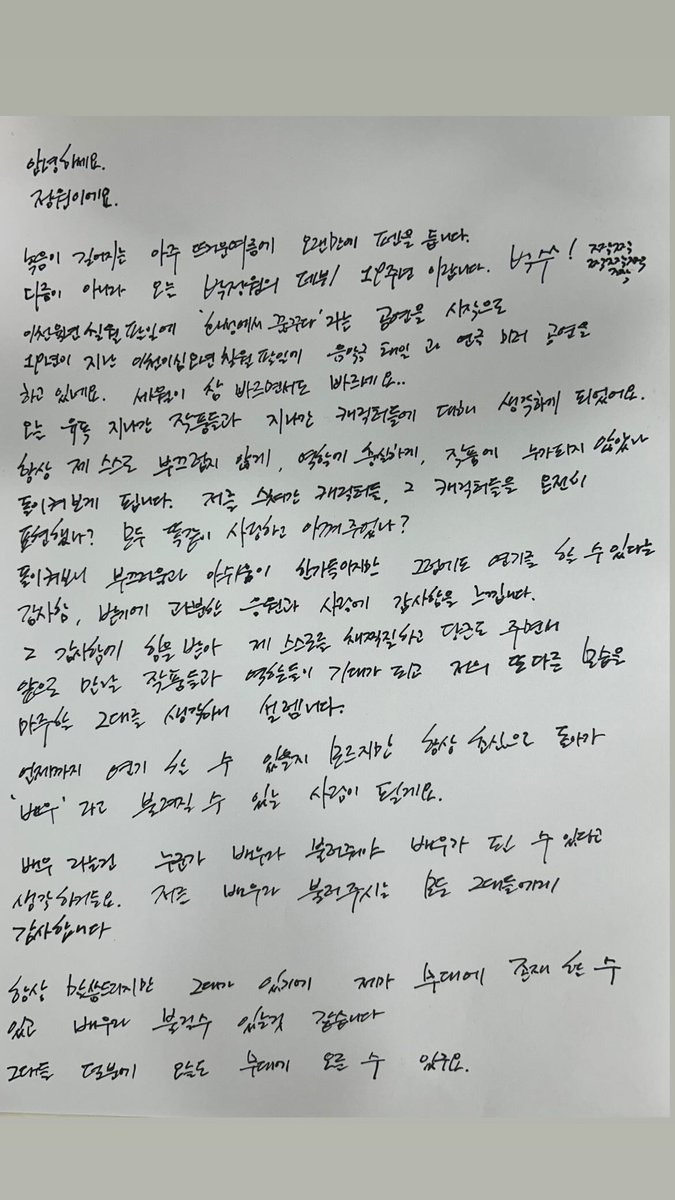 안녕하세요.
장원이에요.
녹음이 짙어지는 아주 뜨거운여름에 오랜만에 펜을 듭니다.
다름이 아니라 오늘 박장원의 데뷔 19주년 이랍니다. 박수! 짝짝짝
짝짝짝짝짝
짝짝
이천칠년 칠월 팔일에 '화성에서 꿈꾸다' 라는 공연을 시작으로
19년이 지난 이천이십 칠월 팔일에 음악극 태일 과 연극 공연을
하고 있네요. 세월이 참 빠르면서도 빠르네요..
오늘 유독 지나간 작품들과 지나간 캐릭터들에 대해 생각하게 되었어요.
항상 제 스스로 부끄럽지 않게, 역할에 충실하게, 작품에 누가되지 않았나
돌이켜보게 됩니다. 저를 스쳐간 캐릭터들, 그 캐릭터들을 온전히
표현했나? 모두 똑같이 사랑하고 아껴주었나?
돌이켜보니 부끄러움과 아쉬움이 한가득이지만 그럼에도 연기를 할 수 있다는
감사함, 밖에 과분한 응원과 사랑에 감사함을 느낍니다.
그 감사함에 힘을 받아 제 스스로를 채찍질하고 당근도 주면서
앞으로 만날 작품들과 역할들이 기대가 되고 저의 또 다른 모습을
마주할 그대를 생각하니 설렙니다.
언제까지 연기 할 수 있을지 모르지만 항상 초심으로 돌아가
'배우' 라고 불려질 수 있는 사람이 될게요.
배우 라는건 누군가 배우라 불러줘야 배우가 될 수 있다고
생각하거든요. 저를 배우라 불러주시는 모든 그대들에게
감사합니다
항상 말씀드리지만 그대가 있기에 제가 무대에 존재 할 수
있고 배우라 불릴수 있는것 같습니다
그대들 덕분에 오늘도 무대에 오를 수 있구요.